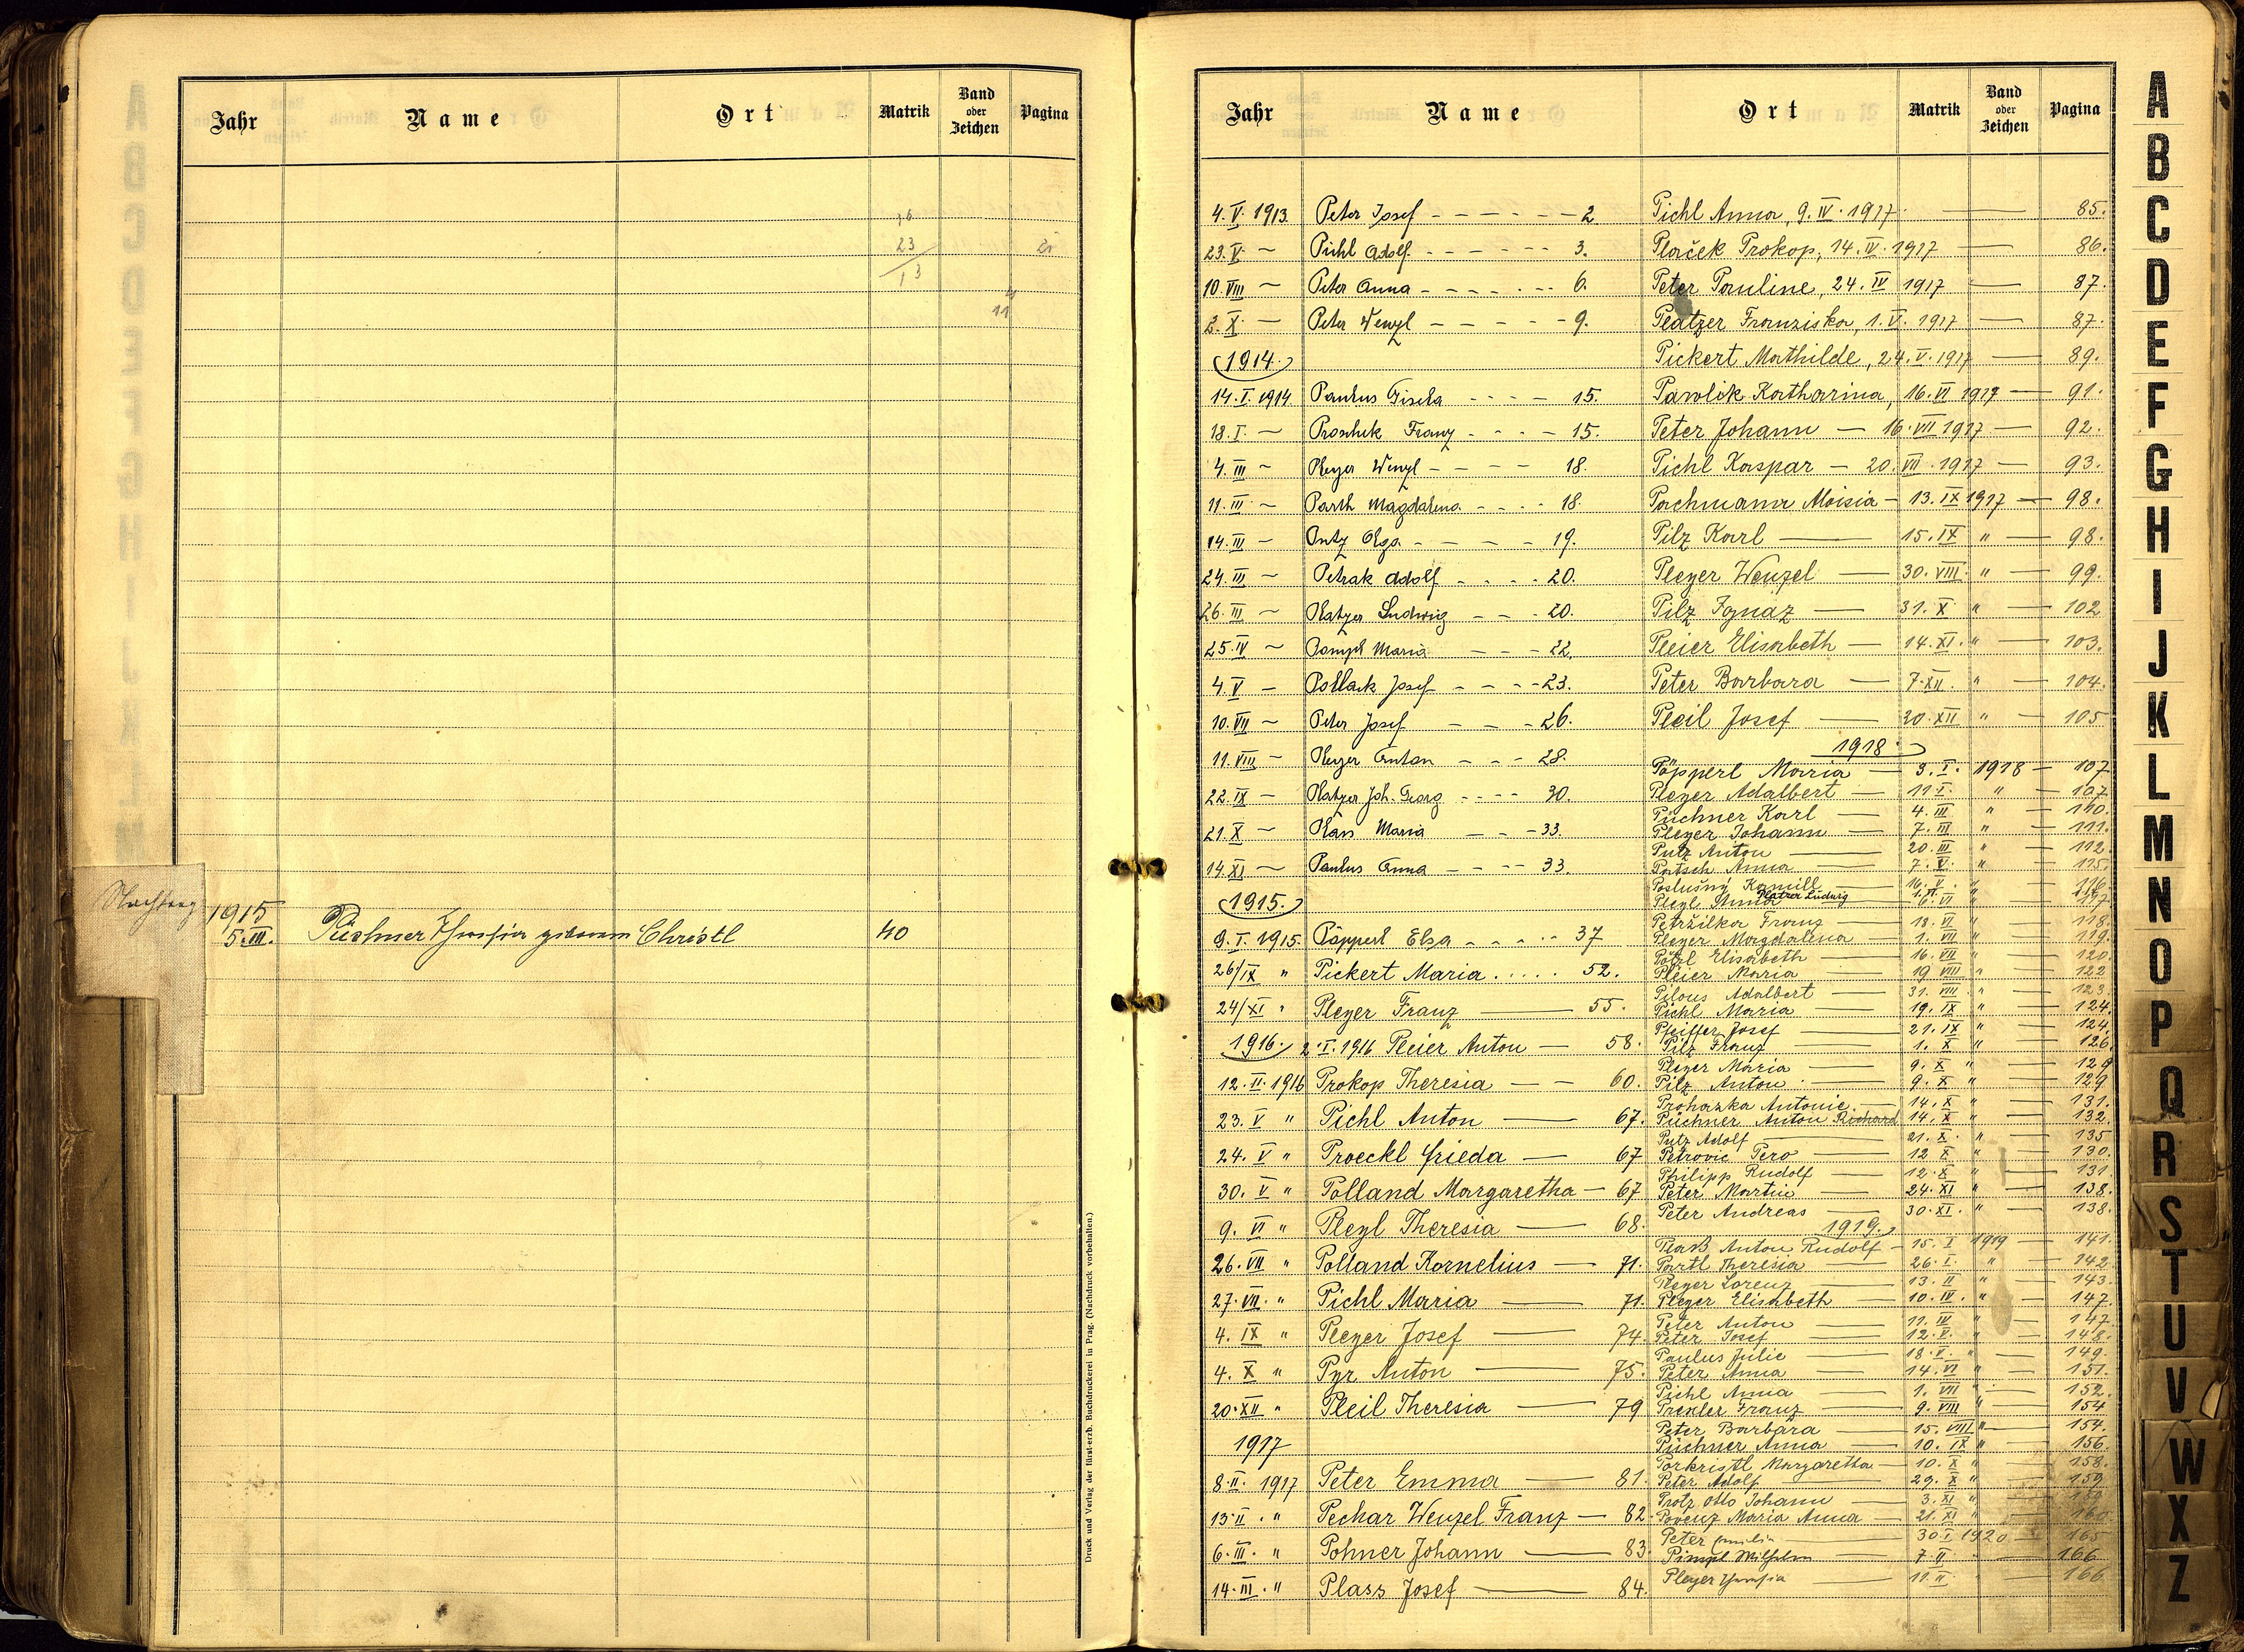 Jahr Name Ort Matrik Band oder Zeichen Pagina
23
13
11
Nachtrag
1915
5. III. Püchner Theresia geborene Christl 40
Druck und Verlag der fürst-erzb. Buchdruckerei in Prag. (Nachdruck vorbehalten.)
Jahr Name Ort Matrik Band oder Zeichen Pagina
4. V. 1913. Peter Josef - - - - - - 2
23. V. ~ Pichl Adolf - - - - - - 3.
10. VIII ~ Peter Anna - - - - - - 6.
2. X. ~ Peter Wenzl - - - - - 9.
1914.
14. I. 1914 Paulus Gisela - - - - 15.
18. I. ~ Franz - - - - 15.
4. III ~ Pleyer Wenzl - - - - 18.
11. III ~ Parth Magdalena - - - - 18.
14. III ~ Putz Olga - - - - 19.
24. III ~ Petrak Adolf - - - - 20.
26. III ~ Platzer Ludwig - - - 20.
25. IV ~ Maria - - - 22.
4. V ~ Pollack Josef - - - - 23.
10. VII ~ Peter Josef - - - 26.
11. VIII ~ Pleyer Anton - - - 28.
22. IX ~ Platzer Joh. Georg - - - - 30.
21. X ~ Maria - - - 33.
14. XI ~ Paulus Anna - - - - 33.
1915.
9. I. 1915. Pöpperl Elsa - - - - - 37
26/IX " Pickert Maria . . . . . 52.
24/XI " Pleyer Franz — 55.
1916. 2. I. 1916 Pleier Anton — 58.
12. II. 1916 Prokop Theresia — — 60.
23. V " Pichl Anton — 67.
24. V " Proeckl Frieda — 67
30. V " Polland Margaretha — 67
9. VI " Pleyl Theresia — 68.
26. VII " Polland Kornelius — 71.
27. VII. " Pichl Maria — 71.
4. IX " Pleyer Josef — 74.
4. X " Pyr Anton — 75.
20. XII " Pleil Theresia — 79
1917
8. II. 1917 Peter Emma — 81.
13. II. " Pechar Wenzel Franz — 82.
6. III. " Pohner Johann — 83.
14. III. " Plass Josef — 84.
Pichl Anna, 9. IV. 1917. — 85.
Plaček Prokop, 14. IV. 1917 — 86.
Peter Pauline, 24. IV 1917 — 87.
Platzer Franziska, 1. V. 1917 — 87.
Pickert Mathilde, 24. V. 1917 — 89.
Pawlik Katharina, 16. VI 1917 — 91.
Peter Johann — 16. VII 1917 — 92.
Pichl Kaspar — 20. VII. 1917 — 93.
Pachmann Aloisia — 13. IX 1917 — 98.
Pilz Karl — 15. IX " — 98.
Pleyer Wenzel — 30. VIII. " — 99.
Pilz Ignaz — 31. X " — 102
Pleier Elisabeth — 14. XI. " — 103.
Peter Barbara — 7. XII. " — 104.
Pleil Josef — 20. XII " — 105
1918.
Pöpperl Maria — 3. I. 1918 — 107
Pleyer Adalbert — 11. I. " — 107
Püchner Karl — 4. III " — 110.
Pleyer Johann — 7. III " — 111.
Putz Anton — 20. III " — 112.
Pötsch Anna — 7. V. " — 115.
Poslušný Kamill — 16. V. " — 116.
Platzer Ludwig
Pleyl Anna — 6. VI " — 117
Petržilka Franz — 18. VI " — 118.
Pleyer Magdalena — 1. VII " — 119.
Elisabeth — 16. VII " — 120.
Pleier Maria — 19. VIII " — 122
Pilous Adalbert — 31. VIII. " — 123.
Pichl Maria — 19. IX " — 124.
Pfeiffer Josef — 21. IX " — 124.
Pilz Franz — 1. X " — 126
Pleyer Maria — 9. X " — 129
Pilz Anton — 9. X " — 129
Prohazka Antonie — 14. X " — 131.
Püchner Anton Richard 14. X " — 132.
Putz Adolf — 21. X. " — 135
Petrovic Pero — 12 X " — 130.
Philipp Rudolf — 12. X " — 131.
Peter Martin — 24. XI " — 138.
Peter Andreas — 30. XI. " — 138.
1919.
Plass Anton Rudolf — 15. I 1919 — 141.
Partl Theresia — 26. I. " — 142
Pleyer Lorenz — 13. II " — 143.
Pleyer Elisabeth — 10. IV. " — 147.
Peter Anton — 11. IV " — 147
Peter Josef — 12. V. " — 148.
Paulus Julie — 18. V. " — 149.
Peter Anna — 14. VI " — 151.
Pichl Anna — 1. VII " — 152.
Prexler Franz — 9. VIII " — 154
Peter Barbara — 15. VIII " — 154.
Püchner Anna — 10. IX " — 156.
Porkristl Margaretha — 10. X " — 158.
Peter Adolf — 29. X " — 159
Protz Otto Johann — 3. XI "
Povenz Maria Anna — 21. XI " — 160.
Peter Emilie — 30. I 1920 — 165
Pimpl Wilhelm — 7. II " — 166
Pleyer Theresia — 11. II " — 166.
A
B
C
D
E
F
G
H
I
J
K
L
M
N
O
P
Q
R
S
T
U
V
W
X
Z